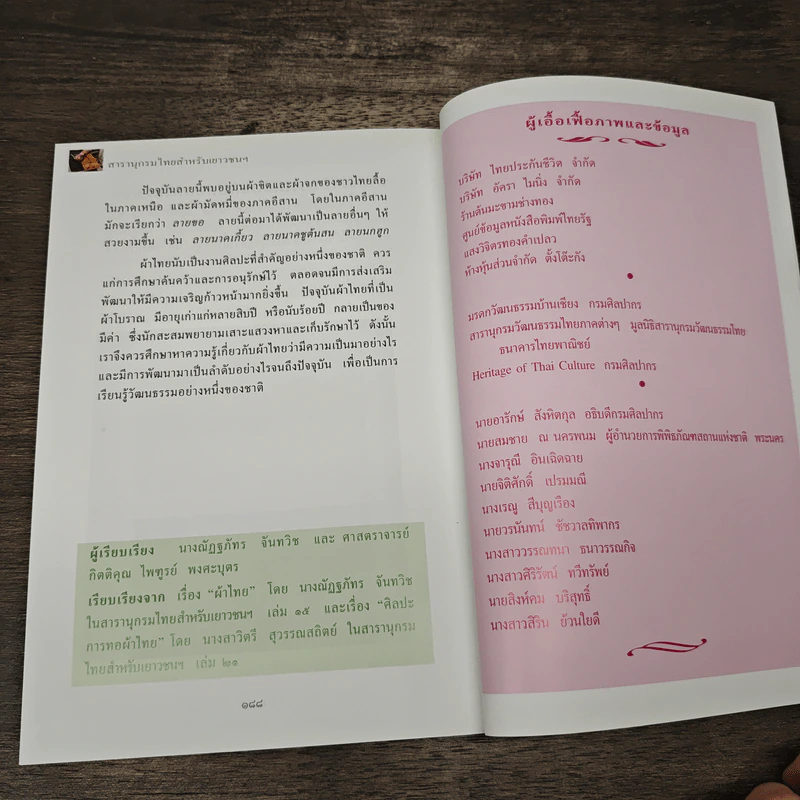 สารานุกรมไทยสำหรับเยาวชนฯ
ปัจจุบันลายนี้พบอยู่บนผ้าขิตและผ้าจกของชาวไทยลื้อ
ในภาคเหนือ และผ้ามัดหมี่ของภาคอีสาน โดยในภาคอีสาน
มักจะเรียกว่า ลายขอ ลายนี้ต่อมาได้พัฒนาเป็นลายอื่นๆ ให้
สวยงามขึ้น เช่น ลายนาคเกี้ยว ลายนาคชูต้นสน ลายนกฮูก
ผ้าไทยนับเป็นงานศิลปะที่สำคัญอย่างหนึ่งของชาติ ควร
แก่การศึกษาค้นคว้าและการอนุรักษ์ไว้ ตลอดจนมีการส่งเสริม
พัฒนาให้มีความเจริญก้าวหน้ามากยิ่งขึ้น ปัจจุบันผ้าไทยที่เป็น
ผ้าโบราณ มีอายุเก่าแก่หลายสิบปี หรือนับร้อยปี กลายเป็นของ
มีค่า ซึ่งนักสะสมพยายามเสาะแสวงหาและเก็บรักษาไว้ ดังนั้น
เราจึงควรศึกษาหาความรู้เกี่ยวกับผ้าไทยว่ามีความเป็นมาอย่างไร
และมีการพัฒนามาเป็นลำดับอย่างไรจนถึงปัจจุบัน เพื่อเป็นการ
เรียนรู้วัฒนธรรมอย่างหนึ่งของชาติ
ผู้เรียบเรียง นางณัฏฐภัทร จันทวิช และ ศาสตราจารย์
กิตติคุณ ไพฑูรย์ พงศะบุตร
เรียบเรียงจาก เรื่อง “ผ้าไทย” โดย นางณัฏฐภัทร จันทวิช
ในสารานุกรมไทยสำหรับเยาวชนฯ เล่ม ๑๕ และเรื่อง “ศิลปะ
การทอผ้าไทย” โดย นางสาวิตรี สุวรรณสถิตย์ ในสารานุกรม
ไทยสำหรับเยาวชนฯ เล่ม ๒๑
๑๘๘
ผู้เอื้อเฟื้อภาพและข้อมูล
บริษัท ไทยประกันชีวิต จำกัด
บริษัท อัครา ไมนิ่ง จำกัด
ร้านต้นมะขามช่างทอง
ศูนย์ข้อมูลหนังสือพิมพ์ไทยรัฐ
แสงวิจิตรทองคำเปลว
ห้างหุ้นส่วนจำกัด ตั้งโต๊ะกัง
มรดกวัฒนธรรมบ้านเชียง กรมศิลปากร
สารานุกรมวัฒนธรรมไทยภาคต่างๆ มูลนิธิสารานุกรมวัฒนธรรมไทย
ธนาคารไทยพาณิชย์
Heritage of Thai Culture กรมศิลปากร
นายอารักษ์ สังหิตกุล อธิบดีกรมศิลปากร
นายสมชาย ณ นครพนม ผู้อำนวยการพิพิธภัณฑสถานแห่งชาติ พระนคร
นางจารุณี อินเฉิดฉาย
นายจิติศักดิ์ เปรมมณี
นางเรณู สีบุญเรือง
นายวรนันทน์ ชัชวาลทิพากร
นางสาววรรณทนา ธนาวรรณกิจ
นางสาวศิริรัตน์ ทวีทรัพย์
นายสิงห์คม บริสุทธิ์
นางสาวสิริน ย้วนใยดี